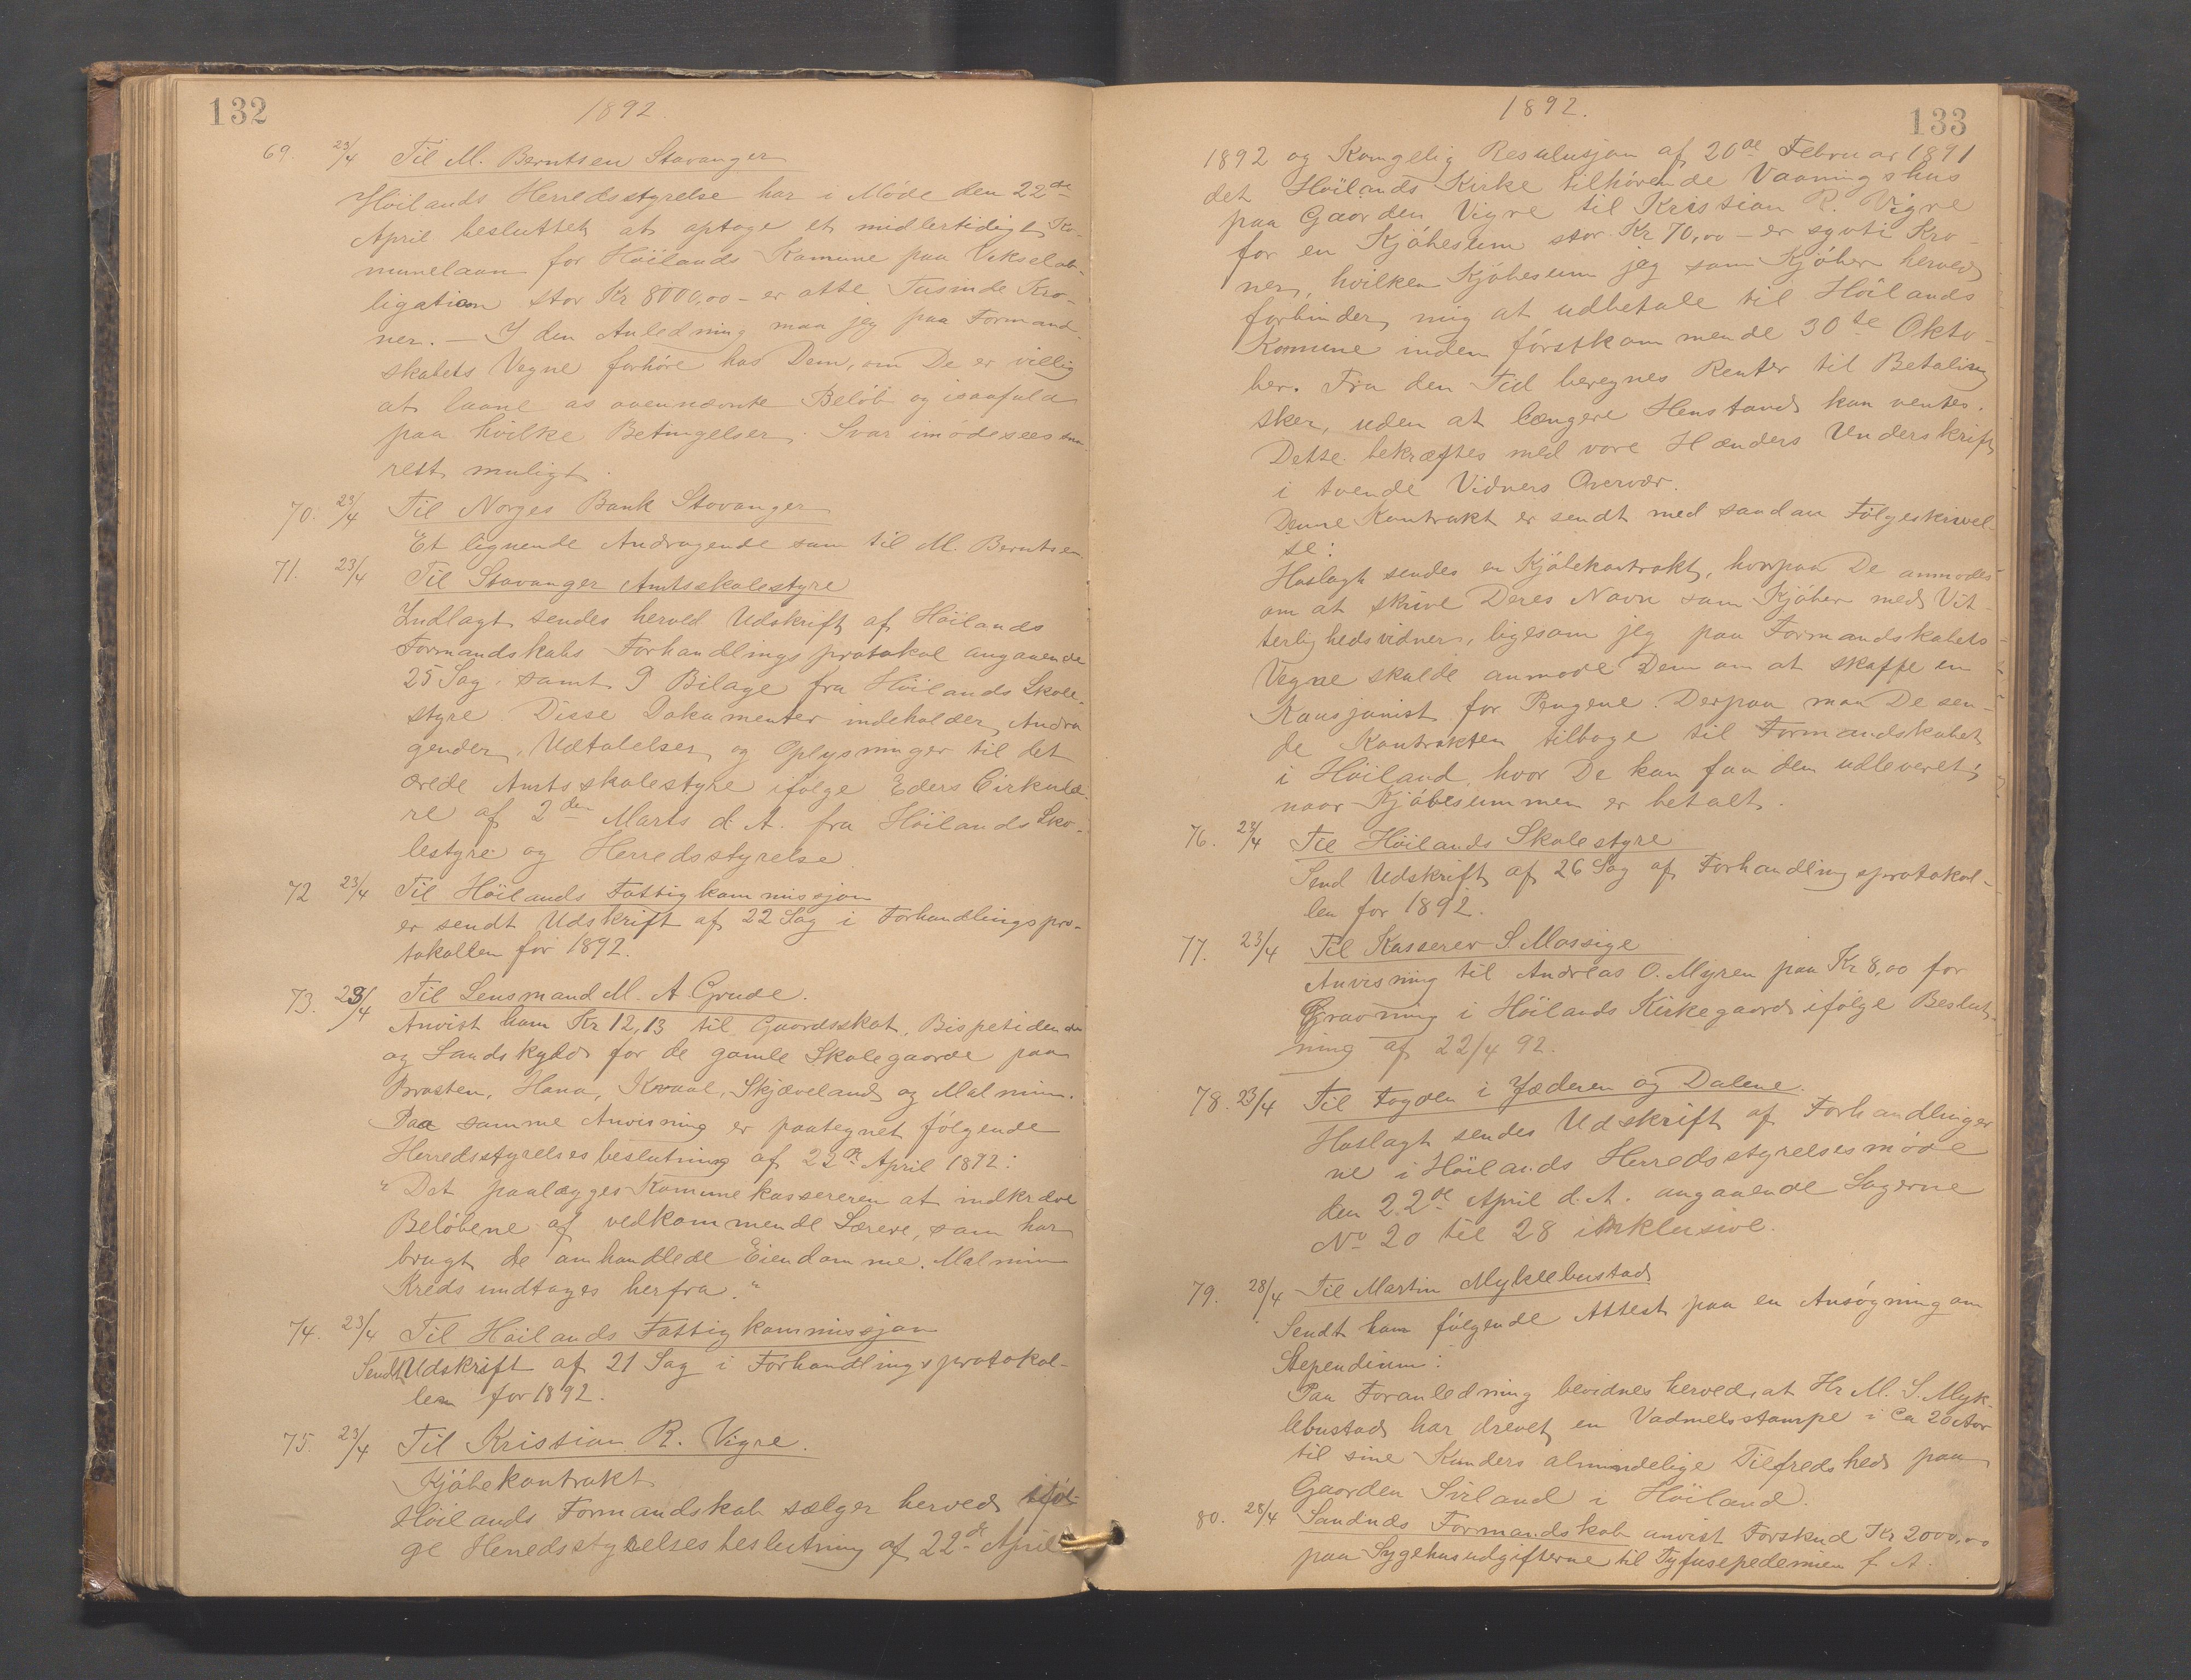 132
1892.
69. 23/4 Til M. Berntsen Stavanger
Höilands Herredsstyrelse har i Möde den 22de
April besluttet at optage et midlertidigt Ko-
munelaan for Höilands Komune paa Vekselob-
ligation stor Kr 8000,00 – er otte Tusinde Kro-
ner. – I den Anledning maa jeg paa Formand-
skabets Vegne forhöre hos Dem, om De er villig
at laane os ovennævnte Belöb og isaafald
paa hvilke Betingelser. Svar imödesees sna-
rest muligt.
70. 23/4 Til Norges Bank Stavanger
Et lignende Andragende som til M. Berntsen.
71. 23/4 Til Stavanger Amtsskolestyre
Indlagt sendes herved Udskrift af Höilands
Formandskabs Forhandlingsprotokol angaaende
25 Sag, samt 9 Bilage fra Höilands Skole-
styre. Disse Dokumenter indeholder Andra
gender, Udtalelser og Oplysninger til det
ærede Amtsskolestyre ifölge Eders Cirkulæ-
re af 2den Marts d. A. fra Höilands Sko-
lestyre og Herredsstyrelse.
72 23/4 Til Höilands Fattigkommissjon
er sendt Udskrift af 22 Sag i Forhandlingspro-
tokollen for 1892.
73. 23/4 Til Lensmand M. A Grude.
Anvist ham Kr 12,13 til Gaardsskat, Bispetienden
og Landskyld for de gamle Skolegaarde paa
Braasten, Hana, Kvaal, Skjæveland og Malmin.
Paa samme Anvisning er paategnet fölgende
Herredsstyrelsesbeslutning af 22de April 1892:
"Det paalægges Kommunekassereren at indkræve
Belöbene af vedkommende Lærere, som har
brugt de omhandlede Eiendomme. Malmin
Kreds undtages herfra."
74. 23/4 Til Höilands Fattigkommissjon
Sendt Udskrift af 21 Sag i Forhandlingsprotokol-
len for 1892.
75. 23/4 Til Kristian R. Vigre.
Kjöbekontrakt
Höilands Formandskab sælger herved iföl-
ge Herredsstyrelsesbeslutning af 22de April
1892.
133
1892 og Kongelig Resulusjon af 20de Februar 1891
det Höilands Kirke tilhörende Vaaningshus
paa Gaarden Vigre til Kristian R. Vigre
for en Kjöbesum stor Kr 70,00 – er sytti Kro-
ner, hvilken Kjöbesum jeg som Kjöber herved
forbinder mig at udbetale til Höilands
Komune inden förstkommende 30te Okto-
ber. Fra den Tid beregnes Renter til Betaling
sker, uden at længere Henstand kan ventes.
Dette bekræftes med vore Hænders Underskrift
i tvende Vidners Overvær.
Denne Kontrakt er sendt med saadan Fölgeskrivel-
se:
Hoslagt sendes en Kjöbekontrakt, hvorpaa De anmodes
om at skrive Deres Navn som Kjöber med Vit-
terlighedsvidner, ligesom jeg paa Formandskabets
Vegne skulde anmode Dem om at skaffe en
Kausjonist for Pengene. Derpaa maa De sen-
de Kontrakten tilbage til Formandskabet
i Höiland, hvor De kan faa den udleveret,
naar Kjöbesummen er betalt.
76. 23/4 Til Höilands Skolestyre
Send Udskrift af 26 Sag af Forhandlingsprotokol-
len for 1892.
77. 23/4 Til Kasserer S Mossige
Anvisning til Andreas O. Myren paa Kr 8,00 for
Gravning i Höilands Kirkegaard ifölge Beslut-
ning af 22/4 92.
78. 23/4 Til Fogden i Jæderen og Dalene.
Hoslagt sendes Udskrift af Forhandlinger
ne i Höilands Herredsstyrelsesmöde
den 22de April d. A. angaaende Sagerne
No 20 til 28 inklusive.
79. 28/4 Til Martin Myklebustad
Sendt ham fölgende Attest paa en Ansögning om
Stependium:
Paa Foranledning bevidnes herved, at Hr M. S. Myk-
lebustad har drevet en Vadmelsstampe i Ca 20 Aar
til sine Kunders almindelige Tilfredshed paa
Gaarden Sviland i Höiland.
80. 28/4 Sandnes Formandskab anvist Forskud Kr 2000,00
paa Sygehusudgifterne til Tyfusepedemien f. A.